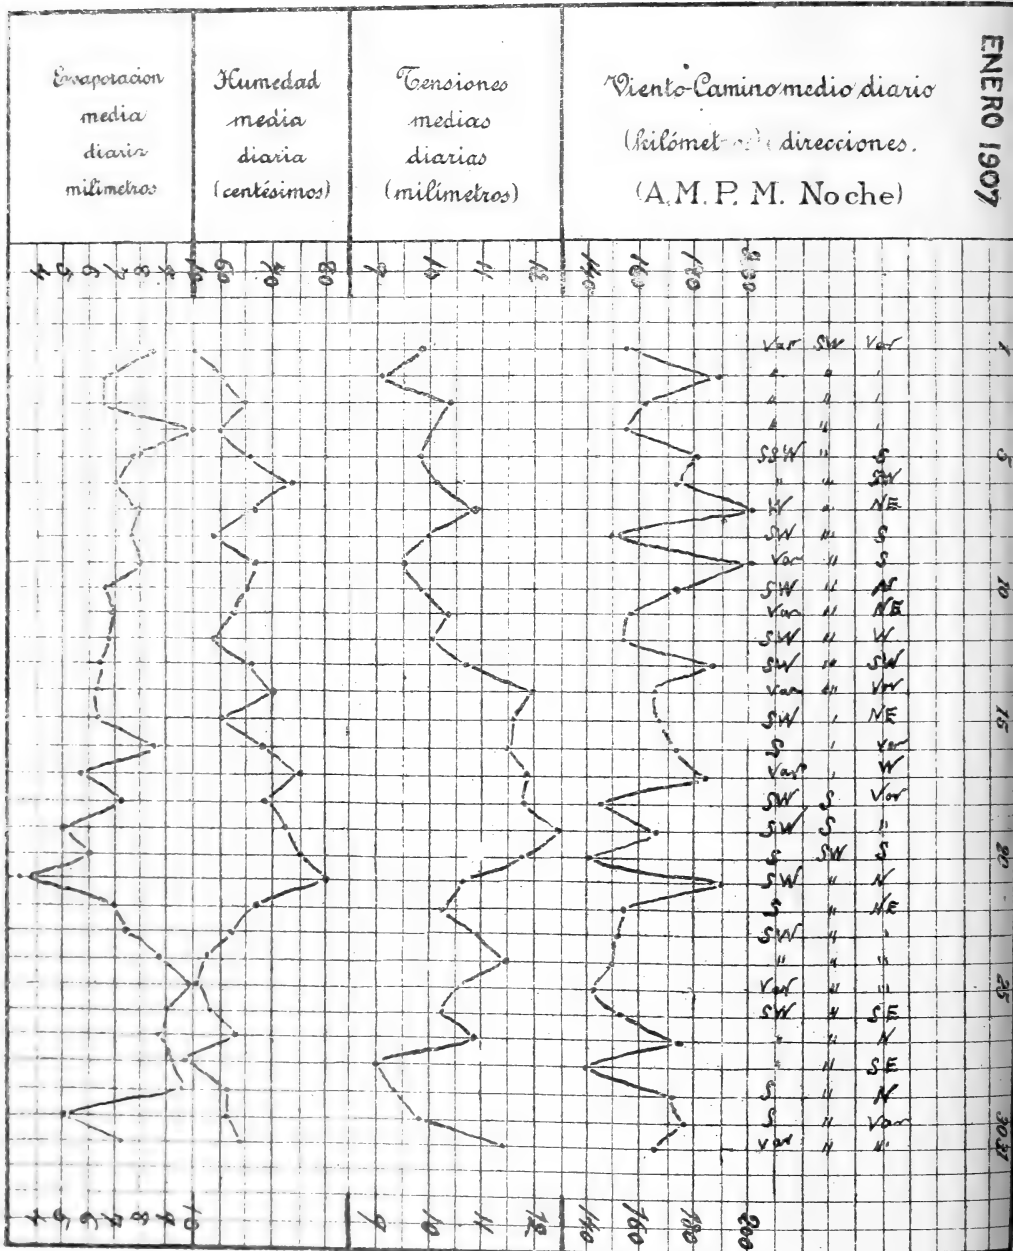 ENERO 1907
Evaporacion
media
diaria
milimetros
Humedad
media
diaria
(centésimos)
Tensiones
medias
diarias
(milímetros)
Viento-Camino medio diario
(kilómet direcciones.
(A.M. P. M. Noche)
4 5 6 7 8 9 10 60 70 80 9 10 11 12 140 160 180 200
1 Var SW Var
" "
" "
" "
5 SSW " S
" " SW
W " NE
SW " S
Var " S
10 SW "
Var " NE
SW " W
SW " SW
Var " Var
15 SW " NE
S " Var
Var " W
SW S Var
SW S "
20 S SW S
SW " N
S " NE
SW " "
" " "
25 Var " "
SW " SE
" " N
" " SE
S " N
30 S " Var
31 Var " "
4 5 6 7 8 9 10 9 10 11 12 140 160 180 200